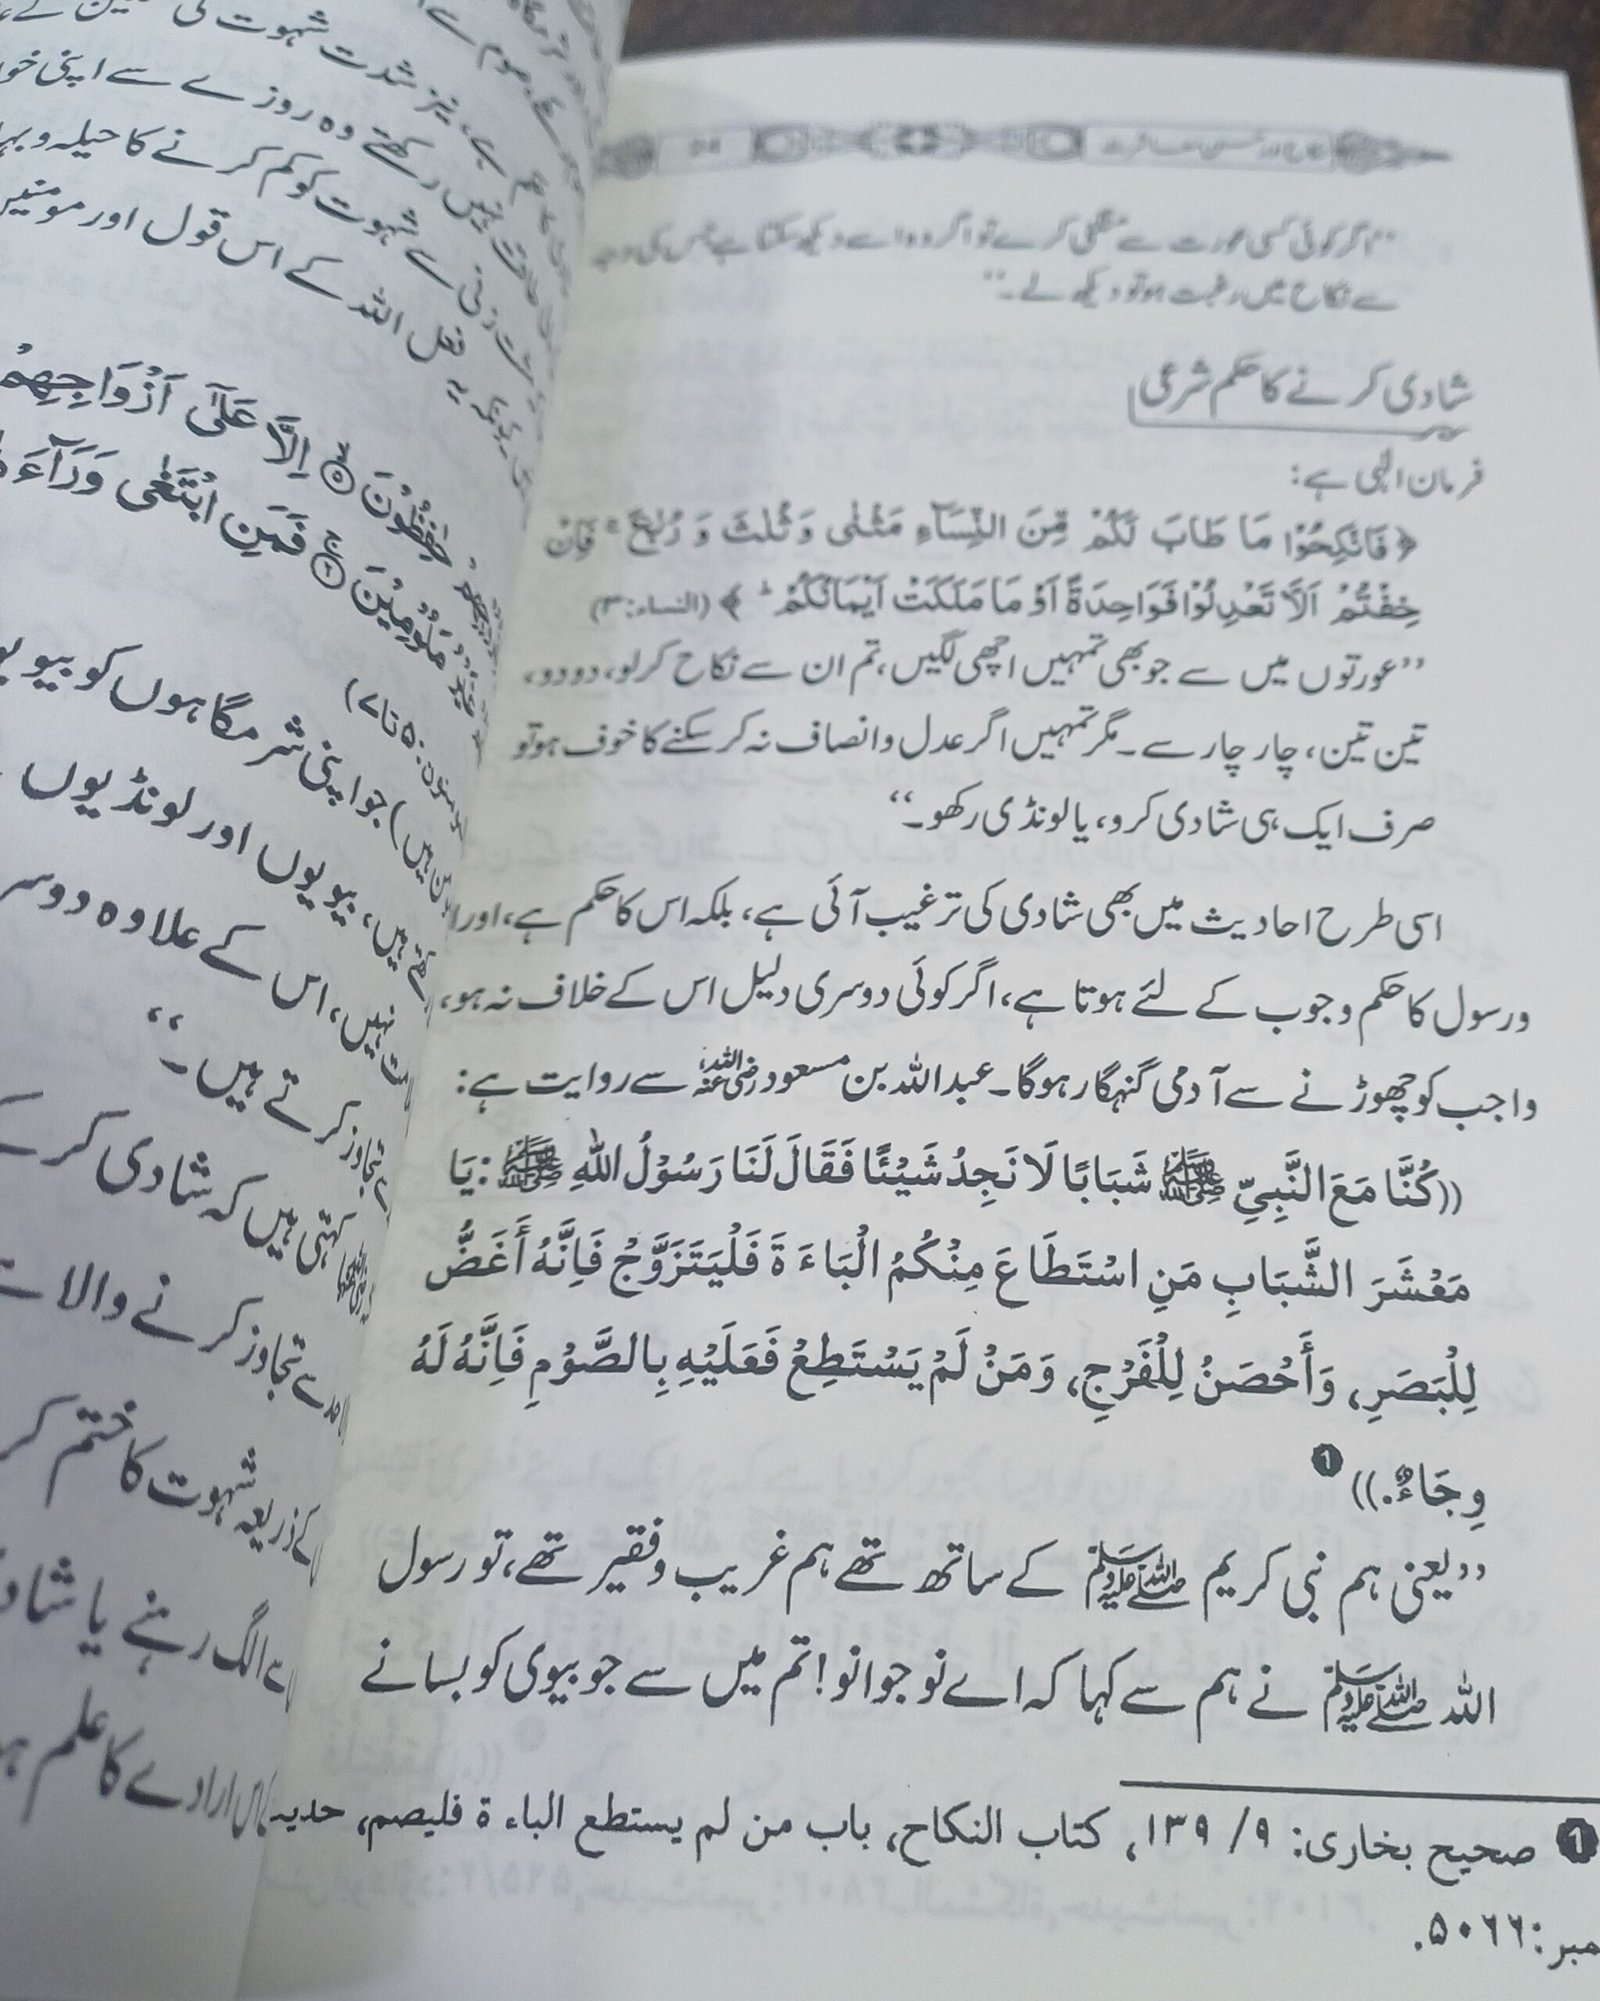 ”اگر کوئی کسی عورت سے منگنی کرے تو اگر وہ اسے دیکھ سکتا ہے جس کی وجہ
سے نکاح میں رغبت ہو تو دیکھ لے۔“
شادی کرنے کا حکم شرعی
فرمان الٰہی ہے:
﴿فَانْكِحُوْا مَا طَابَ لَكُمْ مِّنَ النِّسَآءِ مَثْنٰى وَ ثُلٰثَ وَ رُبٰعَ ۚ فَاِنْ
خِفْتُمْ اَلَّا تَعْدِلُوْا فَوَاحِدَةً اَوْ مَا مَلَكَتْ اَيْمَانُكُمْ ؕ ﴾ (النساء:٣)
”عورتوں میں سے جو بھی تمہیں اچھی لگیں، تم ان سے نکاح کرلو، دو دو،
تین تین، چار چار سے۔ مگر تمہیں اگر عدل و انصاف نہ کر سکنے کا خوف ہو تو
صرف ایک ہی شادی کرو، یا لونڈی رکھو۔“
اسی طرح احادیث میں بھی شادی کی ترغیب آئی ہے، بلکہ اس کا حکم ہے، اور
ورسول کا حکم وجوب کے لئے ہوتا ہے، اگر کوئی دوسری دلیل اس کے خلاف نہ ہو،
واجب کو چھوڑنے سے آدمی گنہگار ہوگا۔ عبداللہ بن مسعود رضی اللہ عنہ سے روایت ہے:
((كُنَّا مَعَ النَّبِيِّ ﷺ شَبَابًا لَا نَجِدُ شَيْئًا فَقَالَ لَنَا رَسُوْلُ اللهِ ﷺ: يَا
مَعْشَرَ الشَّبَابِ مَنِ اسْتَطَاعَ مِنْكُمُ الْبَاءَ ةَ فَلْيَتَزَوَّجْ فَاِنَّهُ أَغَضُّ
لِلْبَصَرِ، وَأَحْصَنُ لِلْفَرْجِ، وَمَنْ لَمْ يَسْتَطِعْ فَعَلَيْهِ بِالصَّوْمِ فَاِنَّهُ لَهُ
وِجَاءٌ.)) ❶
”یعنی ہم نبی کریم ﷺ کے ساتھ تھے ہم غریب و فقیر تھے، تو رسول
اللہ ﷺ نے ہم سے کہا کہ اے نوجوانو! تم میں سے جو بیوی کو بسانے
❶ صحیح بخاری: ۹/ ۱۳۹، کتاب النکاح، باب من لم یستطع الباء ة فلیصم، حدیـ
مبر: ۵۰۶۶.
شدت شہوت کی
نہیں رکھتے وہ روزے سے اپنی
شہوت کو کم کرنے کا حیلہ و
یہ فعل اللہ کے اس قول اور
حٰفِظُوْنَ ۝۵ اِلَّا عَلٰٓى اَزْوَاجِهِمْ
مَلُوْمِيْنَ ۝۶ فَمَنِ ابْتَغٰى وَرَآءَ
۵ تا ۷)
جو اپنی شرمگاہوں کو
ہیں، بیویوں اور لونڈیوں
نہیں، اس کے علاوہ
تجاوز کرتے ہیں۔“
کہتی ہیں کہ شادی کرنے
سے تجاوز کرنے والا
کے ذریعہ شہوت کا ختم کر
الگ رہنے یا
ارادے کا علم